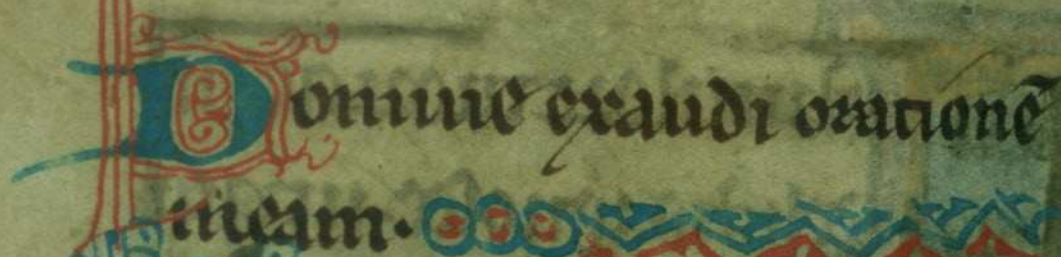 Domine exaudi orationē
meam.